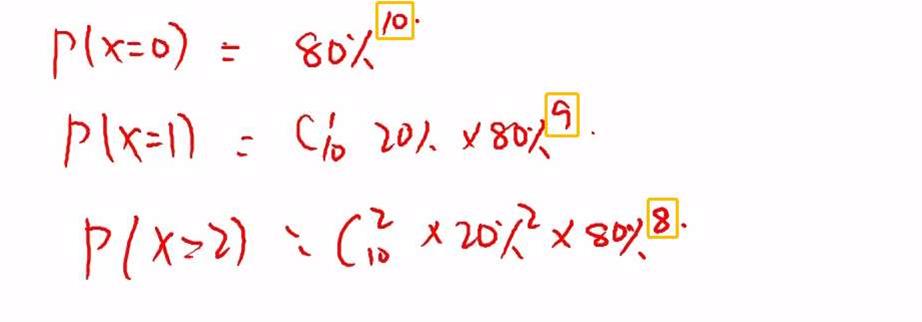 P(x=0) = 80%^10.
P(x=1) = C_10^1 20% × 80%^9.
P(x=2) = C_10^2 × 20%^2 × 80%^8.